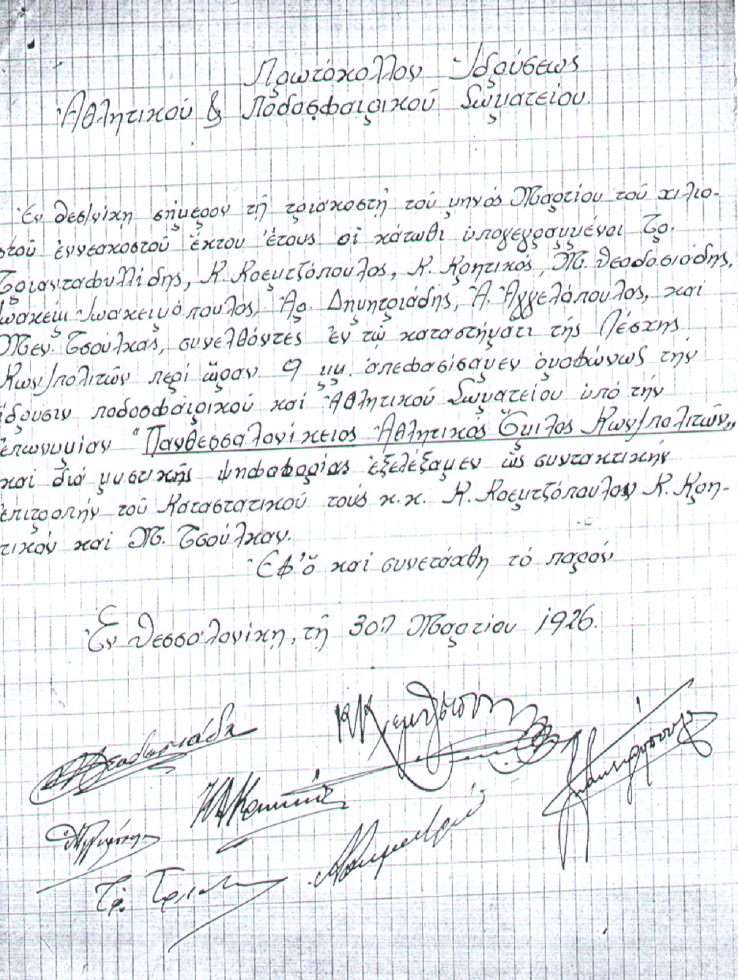 Πρωτόκολλον Ἱδρύσεως
Ἀθλητικοῦ & Ποδοσφαιρικοῦ Σωματείου.
Ἐν Θεσ/νίκῃ σήμερον τῇ τριακοστῇ τοῦ μηνός Μαρτίου τοῦ χιλιο-
στοῦ ἐννεακοστοῦ ἕκτου ἔτους οἱ κάτωθι ὑπογεγραμμένοι Τρ.
Τριανταφυλλίδης, Κ. Κρεμτζόπουλος, Κ. Κρητικός, Μ. Θεοδοσιάδης,
Ἰωακείμ Ἰωακειμόπουλος, Ἀρ. Δημητριάδης, Ἀ. Ἀγγελόπουλος, καί
Μεν. Τσουλκας, συνελθόντες ἐν τῷ καταστήματι τῆς Λέσχης
Κων/πολιτῶν περί ὥραν 9 μμ. ἀπεφασίσαμεν ὁμοφώνως τήν
ἵδρυσιν ποδοσφαιρικοῦ καί Ἀθλητικοῦ Σωματείου ὑπό τήν
ἐπωνυμίαν "Πανθεσσαλονίκειος Ἀθλητικός Ὅμιλος Κων/πολιτῶν„
καί διά μυστικῆς ψηφοφορίας ἐξελέξαμεν ὡς συντακτικήν
ἐπιτροπήν τοῦ Καταστατικοῦ τούς κ.κ. Κ. Κρεμτζόπουλον Κ. Κρη-
τικόν καί Μ. Τσούλκαν.
Ἐφ' ᾧ καί συνετάχθη τό παρόν
Ἐν Θεσσαλονίκῃ, τῇ 30ῇ Μαρτίου 1926.